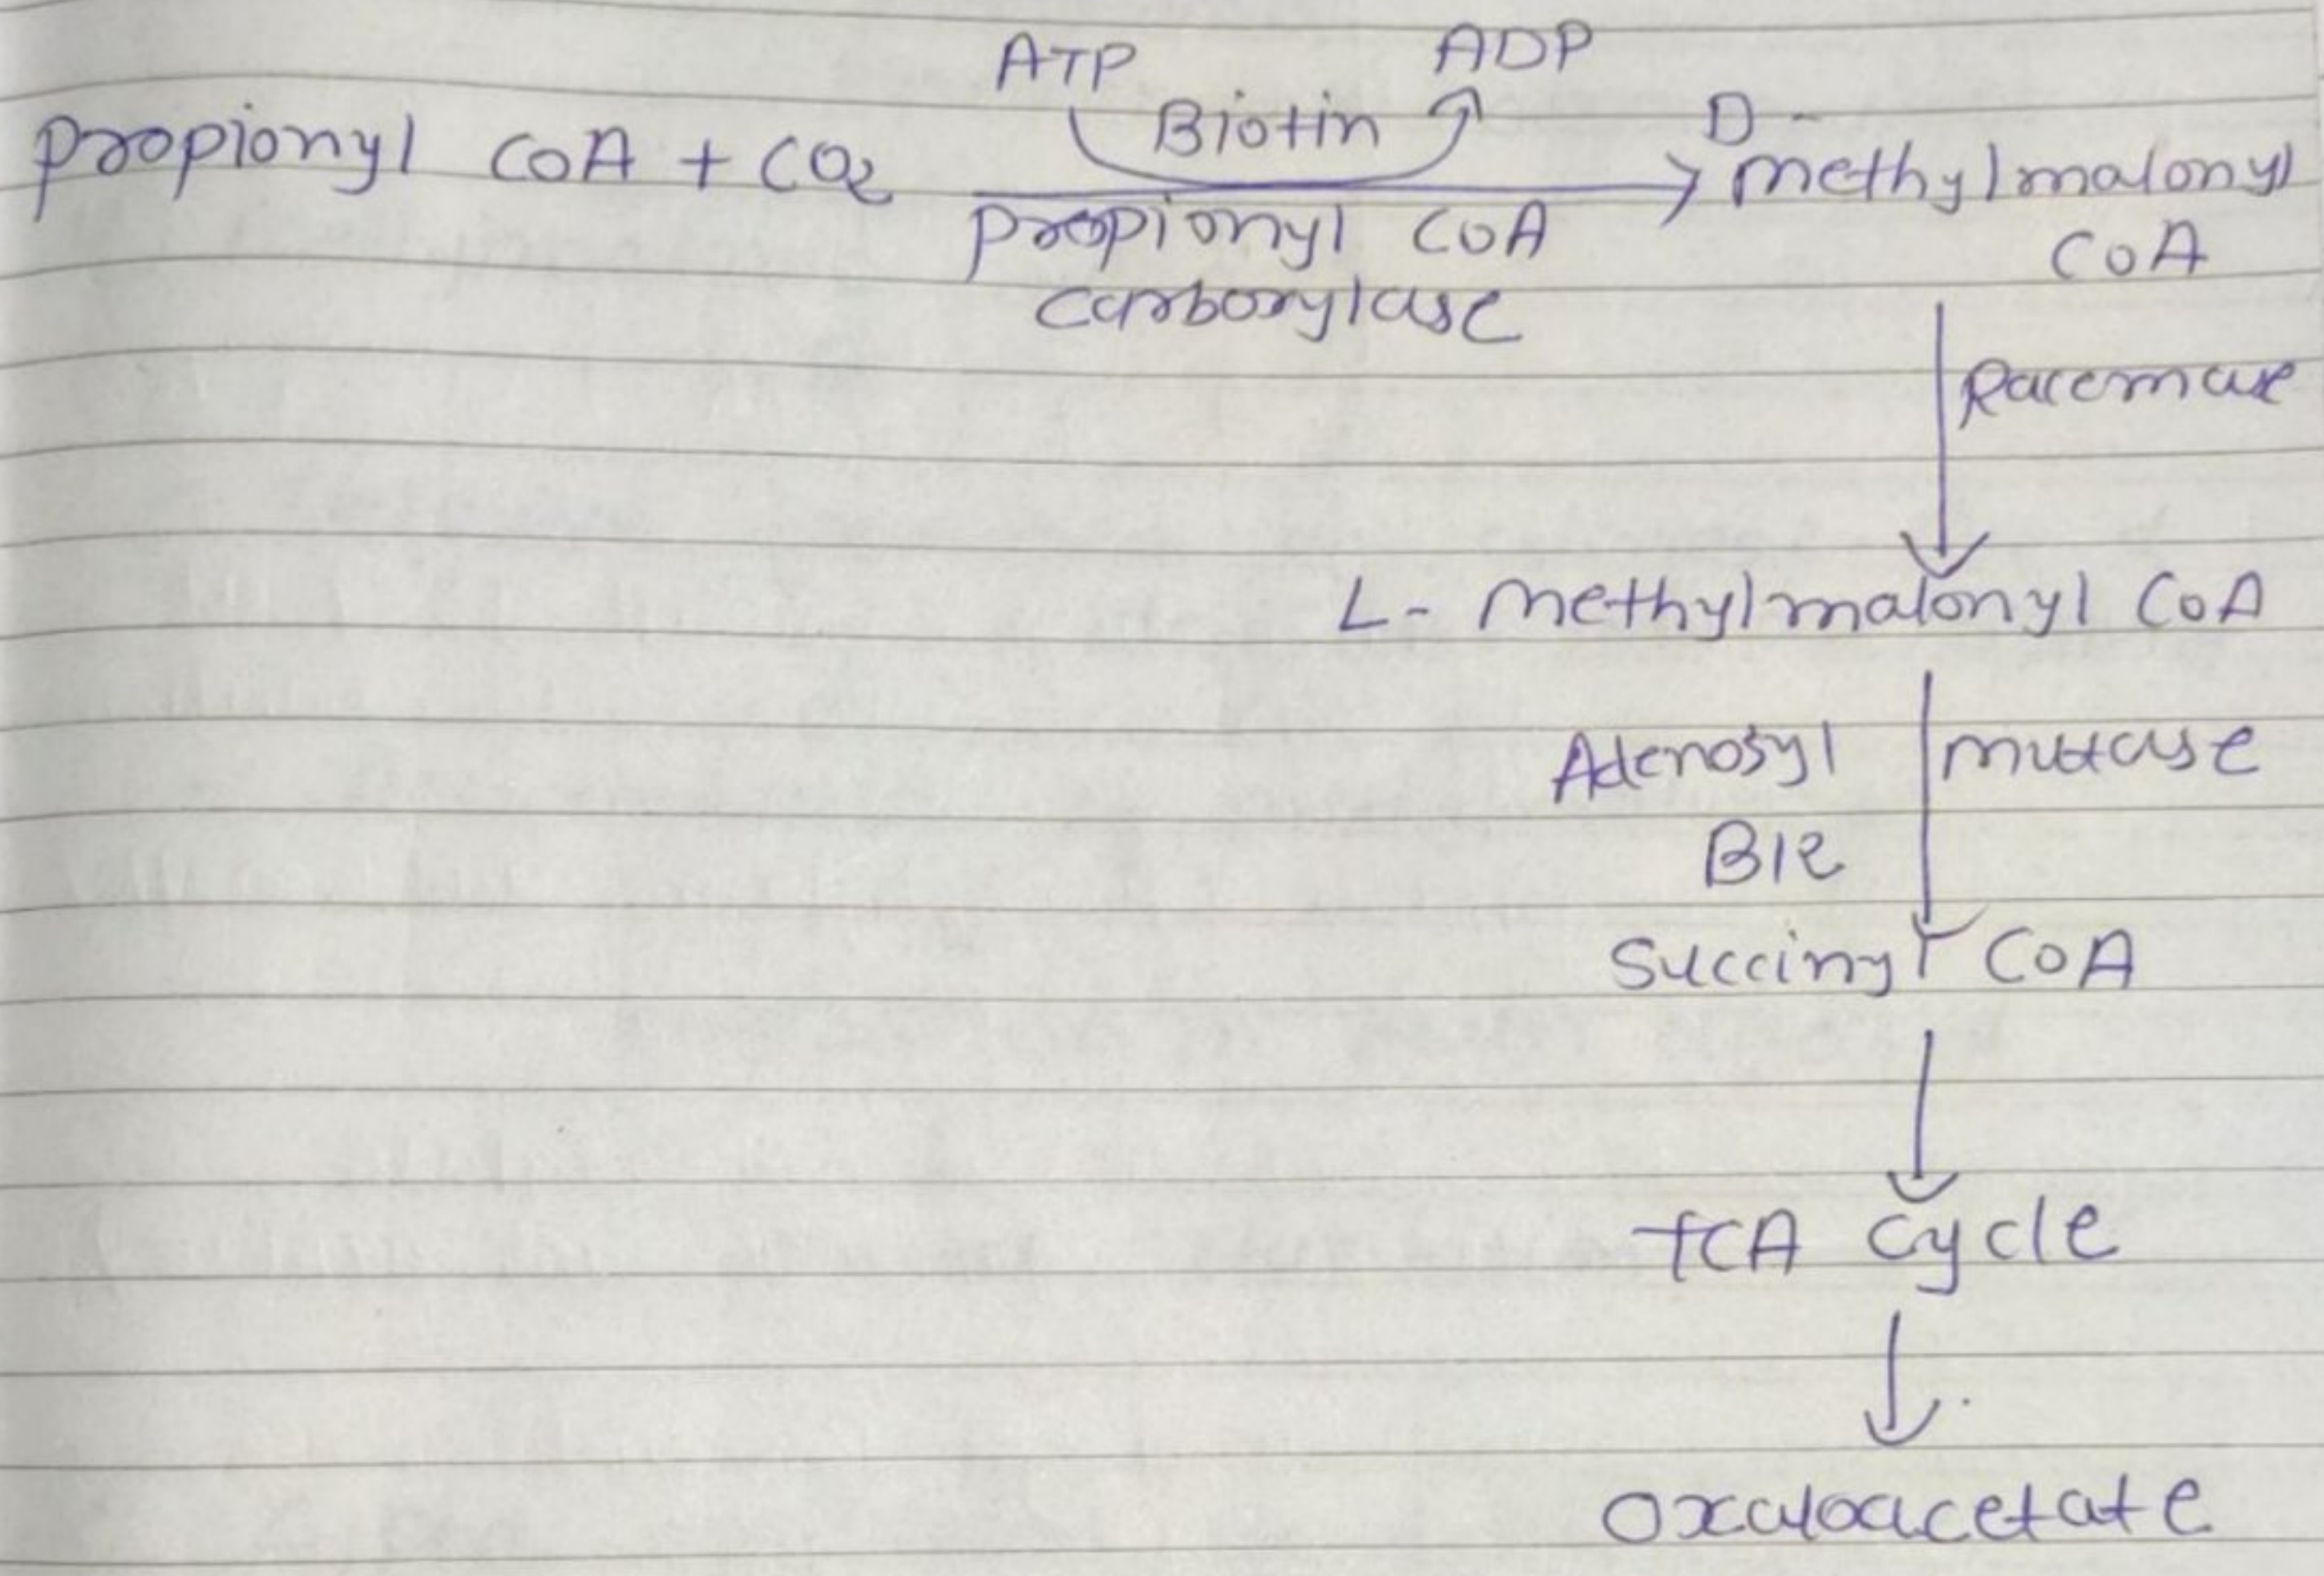 ATP ADP
Biotin
propionyl CoA + CO2 D-
methylmalonyl
propionyl CoA
CoA
carboxylase
Racemase
L- methylmalonyl CoA
Adenosyl mutase
B12
Succinyl CoA
TCA cycle
Oxaloacetate